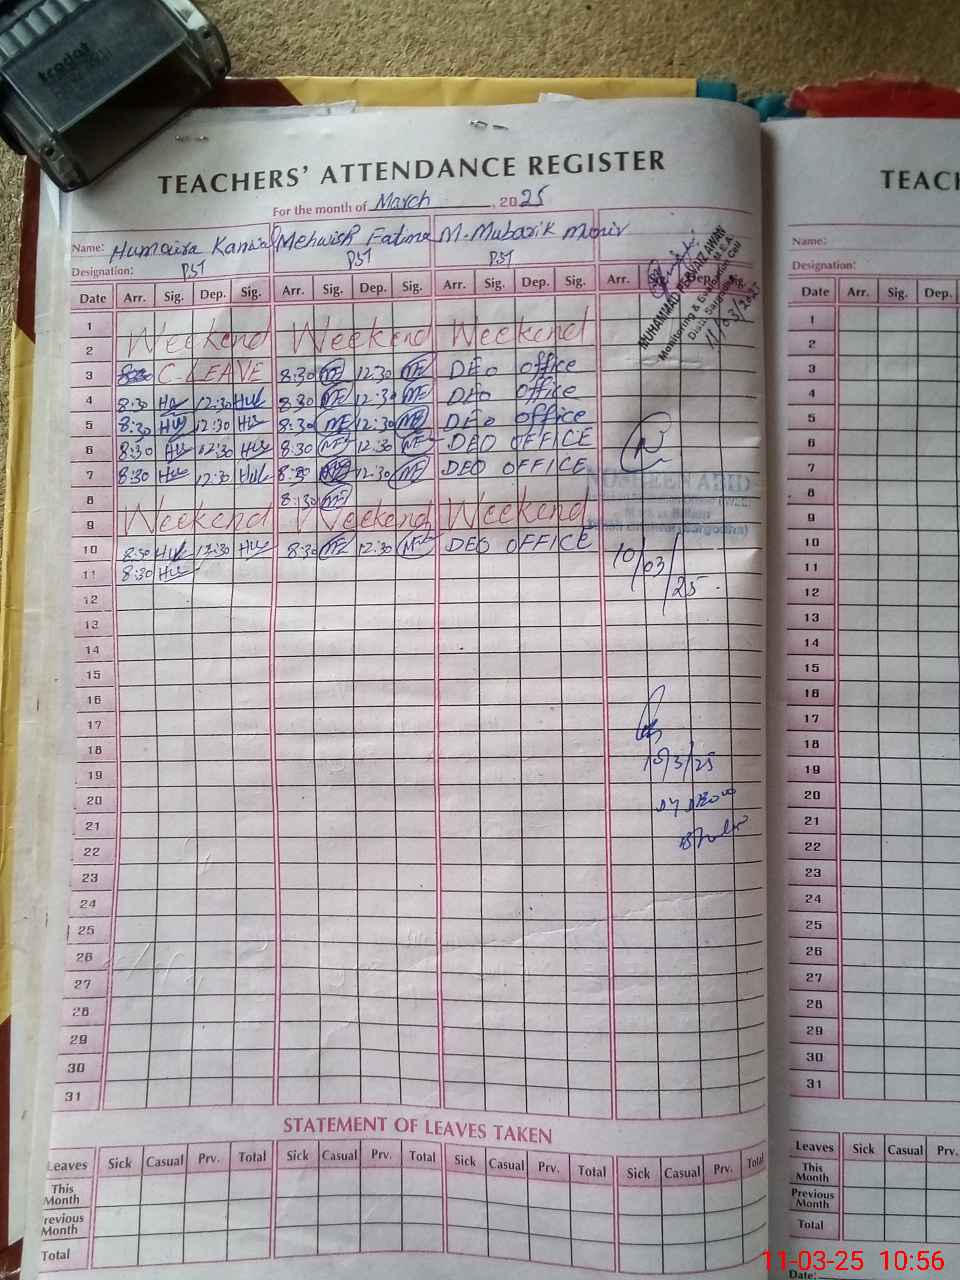 trodat
TEACHERS' ATTENDANCE REGISTER
For the month of March, 2025
Name: Humaira Kanwal Mehwish Fatima M. Mubarik Munir
Designation: PST PST PST
Date Arr. Sig. Dep. Sig. Arr. Sig. Dep. Sig. Arr. Sig. Dep. Sig. Arr. Dep. Sig.
1
Weekend Weekend Weekend
2
3 C-LEAVE 8:30 MF 12:30 MF DEO office
4 8:30 HK 12:30 HK 8:30 MF 12:30 MF DEO office
5 8:30 HK 12:30 HK 8:30 MF 12:30 MF DEO office
6 8:30 HK 12:30 HK 8:30 MF 12:30 MF DEO OFFICE
7 8:30 HK 12:30 HK 8:30 12:30 MF DEO OFFICE
8 8:30 MF
Weekend Weekend Weekend
9
10 8:30 HK 12:30 HK 8:30 MF 12:30 MF DEO OFFICE
11 8:30 HK
12
13
14
15
16
17
18
19
20
21
22
23
24
25
26
27
28
29
30
31
MUHAMMAD PERVAIZ AWAN
M.E.A.
Monitoring & Evaluation Cell
Distt. Sargodha
11/03/2025
10/03/25
10/3/25
STATEMENT OF LEAVES TAKEN
Leaves Sick Casual Prv. Total Sick Casual Prv. Total Sick Casual Prv. Total Sick Casual Prv. Total
This Month
Previous Month
Total
TEACH
Name:
Designation:
Date Arr. Sig. Dep.
1
2
3
4
5
6
7
8
9
10
11
12
13
14
15
16
17
18
19
20
21
22
23
24
25
26
27
28
29
30
31
Leaves Sick Casual Prv.
This Month
Previous Month
Total
Date:
11-03-25 10:56